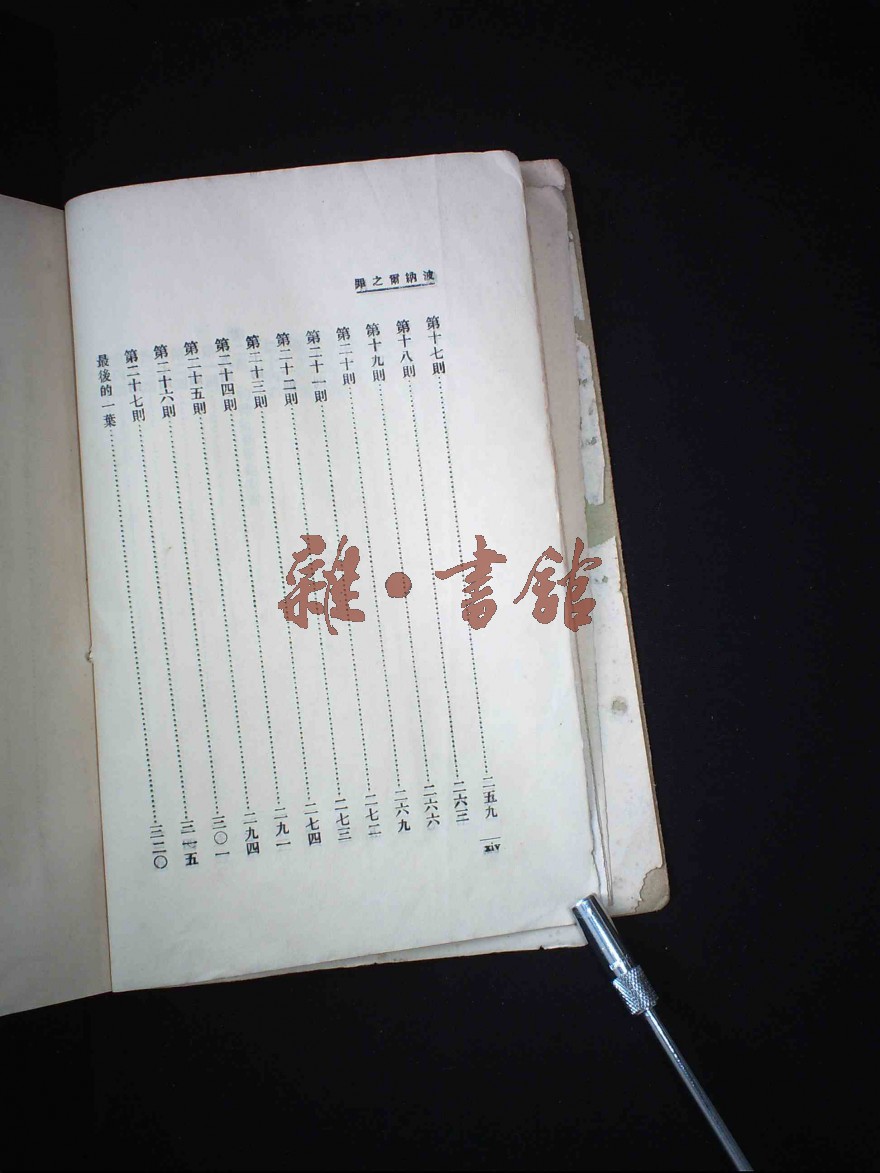 波納爾之罪
第十七則……二五九
第十八則……二六三
第十九則……二六六
第二十則……二六九
第二十一則……二七二
第二十二則……二七三
第二十三則……二七四
第二十四則……二九一
第二十五則……二九四
第二十六則……三〇一
第二十七則……三一五
最後的一葉……三二〇
xiv
雜·書館